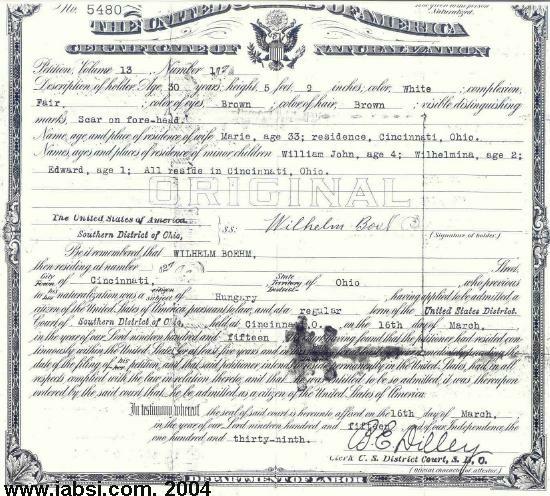 No. 5480
THE UNITED STATES OF AMERICA
CERTIFICATE OF NATURALIZATION
Petition, Volume 13 Number
Description of holder: Age, 30 years; height, 5 feet, 9 inches; color, White; complexion,
Fair; color of eyes, Brown; color of hair, Brown; visible distinguishing
marks, Scar on fore-head.
Name, age and place of residence of wife Marie, age 33; residence, Cincinnati, Ohio.
Names, ages and places of residence of minor children William John, age 4; Wilhelmina, age 2;
Edward, age 1; All reside in Cincinnati, Ohio.
ORIGINAL
The United States of America,
Southern District of Ohio, } S.S:
Wilhelm
(Signature of holder.)
Be it remembered, that WILHELM BOEHM,
then residing at number Street,
City Town of Cincinnati, State Territory District of Ohio who previous
to his naturalization was a citizen subject of Hungary, having applied to be admitted a
citizen of the United States of America pursuant to law, and at a regular term of the United States District
Court of Southern District of Ohio, held at Cincinnati, O. on the 16th day of March,
in the year of our Lord nineteen hundred and fifteen having found that the petitioner had resided con-
tinuously within the United States for at least five years and
the date of the filing of his petition, and that said petitioner intends permanently in the United States, had in all
respects complied with the law in relation thereto, and that he was entitled to be so admitted, it was thereupon
ordered by the said court that he be admitted as a citizen of the United States of America.
In testimony whereof the seal of said court is hereunto affixed on the 16th day of March,
in the year of our Lord nineteen hundred and fifteen and of our Independence the
one hundred and thirty-ninth.
B E Dilley
Clerk U. S. District Court, S. D. O.
(Official character of attestor.)
DEPARTMENT OF LABOR
www.iabsi.com, 2004